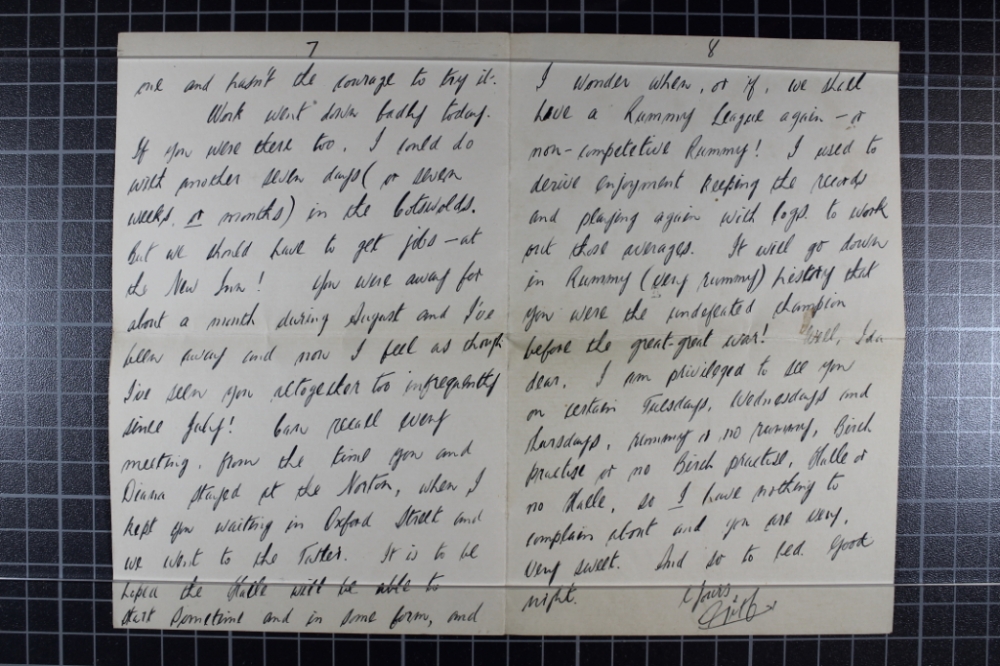 7
one and hasn't the courage to try it.
Work went down badly today.
If you were there too, I could do
with another seven days (or seven
weeks, or months) in the Cotswolds.
But we should have to get jobs - at
the New Inn! You were away for
about a month during August and I've
been away and now I feel as though
I've seen you altogether too infrequently
since July! Can recall every
meeting, from the time you and
Diana stayed at the Norton, when I
kept you waiting in Oxford Street and
we went to the Tatler. It is to be
hoped the Halle will be able to
start sometime and in some form, and
8
I wonder when, or if, we shall
have a Rummy League again - or
non-competetive Rummy! I used to
derive enjoyment keeping the records
and playing again with logs to work
out those averages. It will go down
in Rummy (very rummy) history that
you were the undefeated champion
before the great-great war! Well, Ida
dear, I am privileged to see you
on certain Tuesdays, Wednesdays and
Thursdays, rummy or no rummy, Birch
practise or no Birch practise, Halle or
no Halle, so I have nothing to
complain about and you are very,
very sweet. And so to bed. Good
night.
Yours